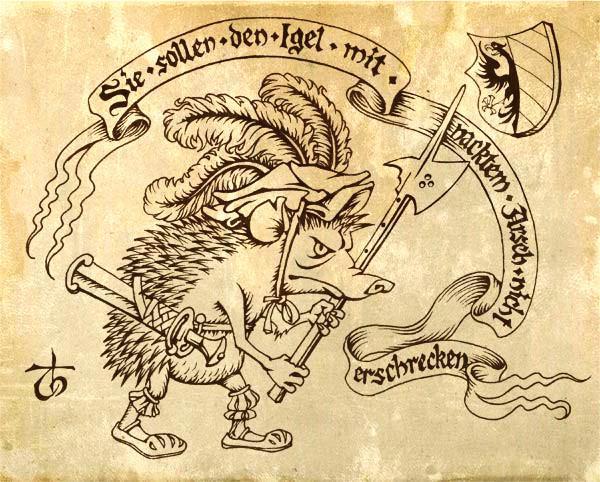 Sie · sollen · den · Igel · mit ·
nacktem · Arsch · nicht
erschrecken